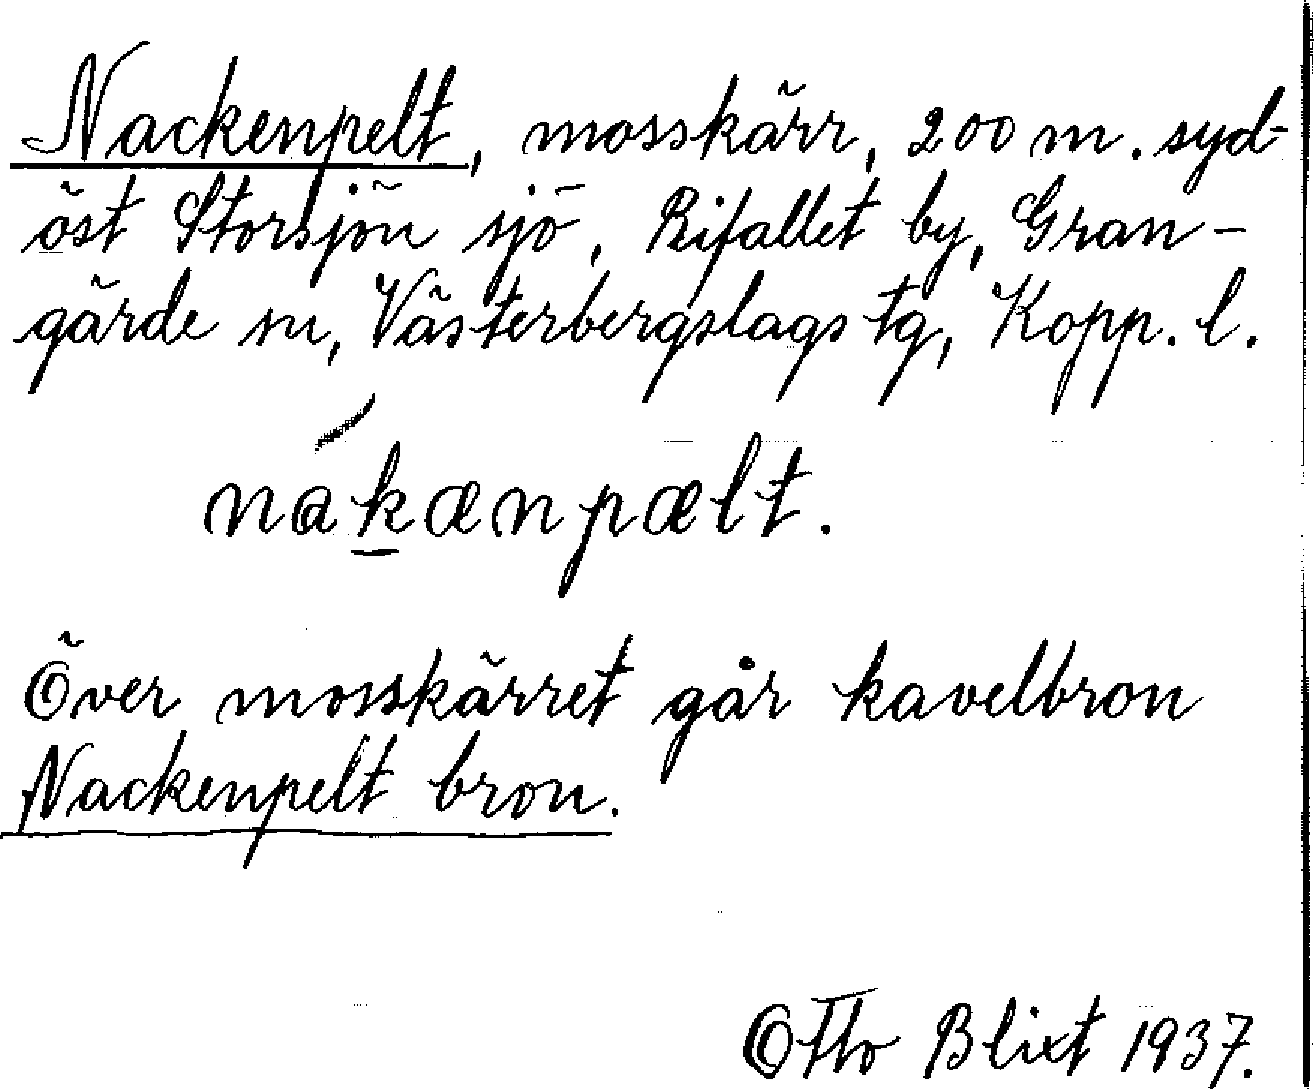 Nackenpelt, mosskärr, 200 m. syd-
öst Storsjön sjö, Rifallet by, Gran-
gärde sn, Västerbergslags tg, Kopp. l.
nákænpælt.
Över mosskärret går kavelbron
Nackenpelt bron.
Otto Blixt 1937.